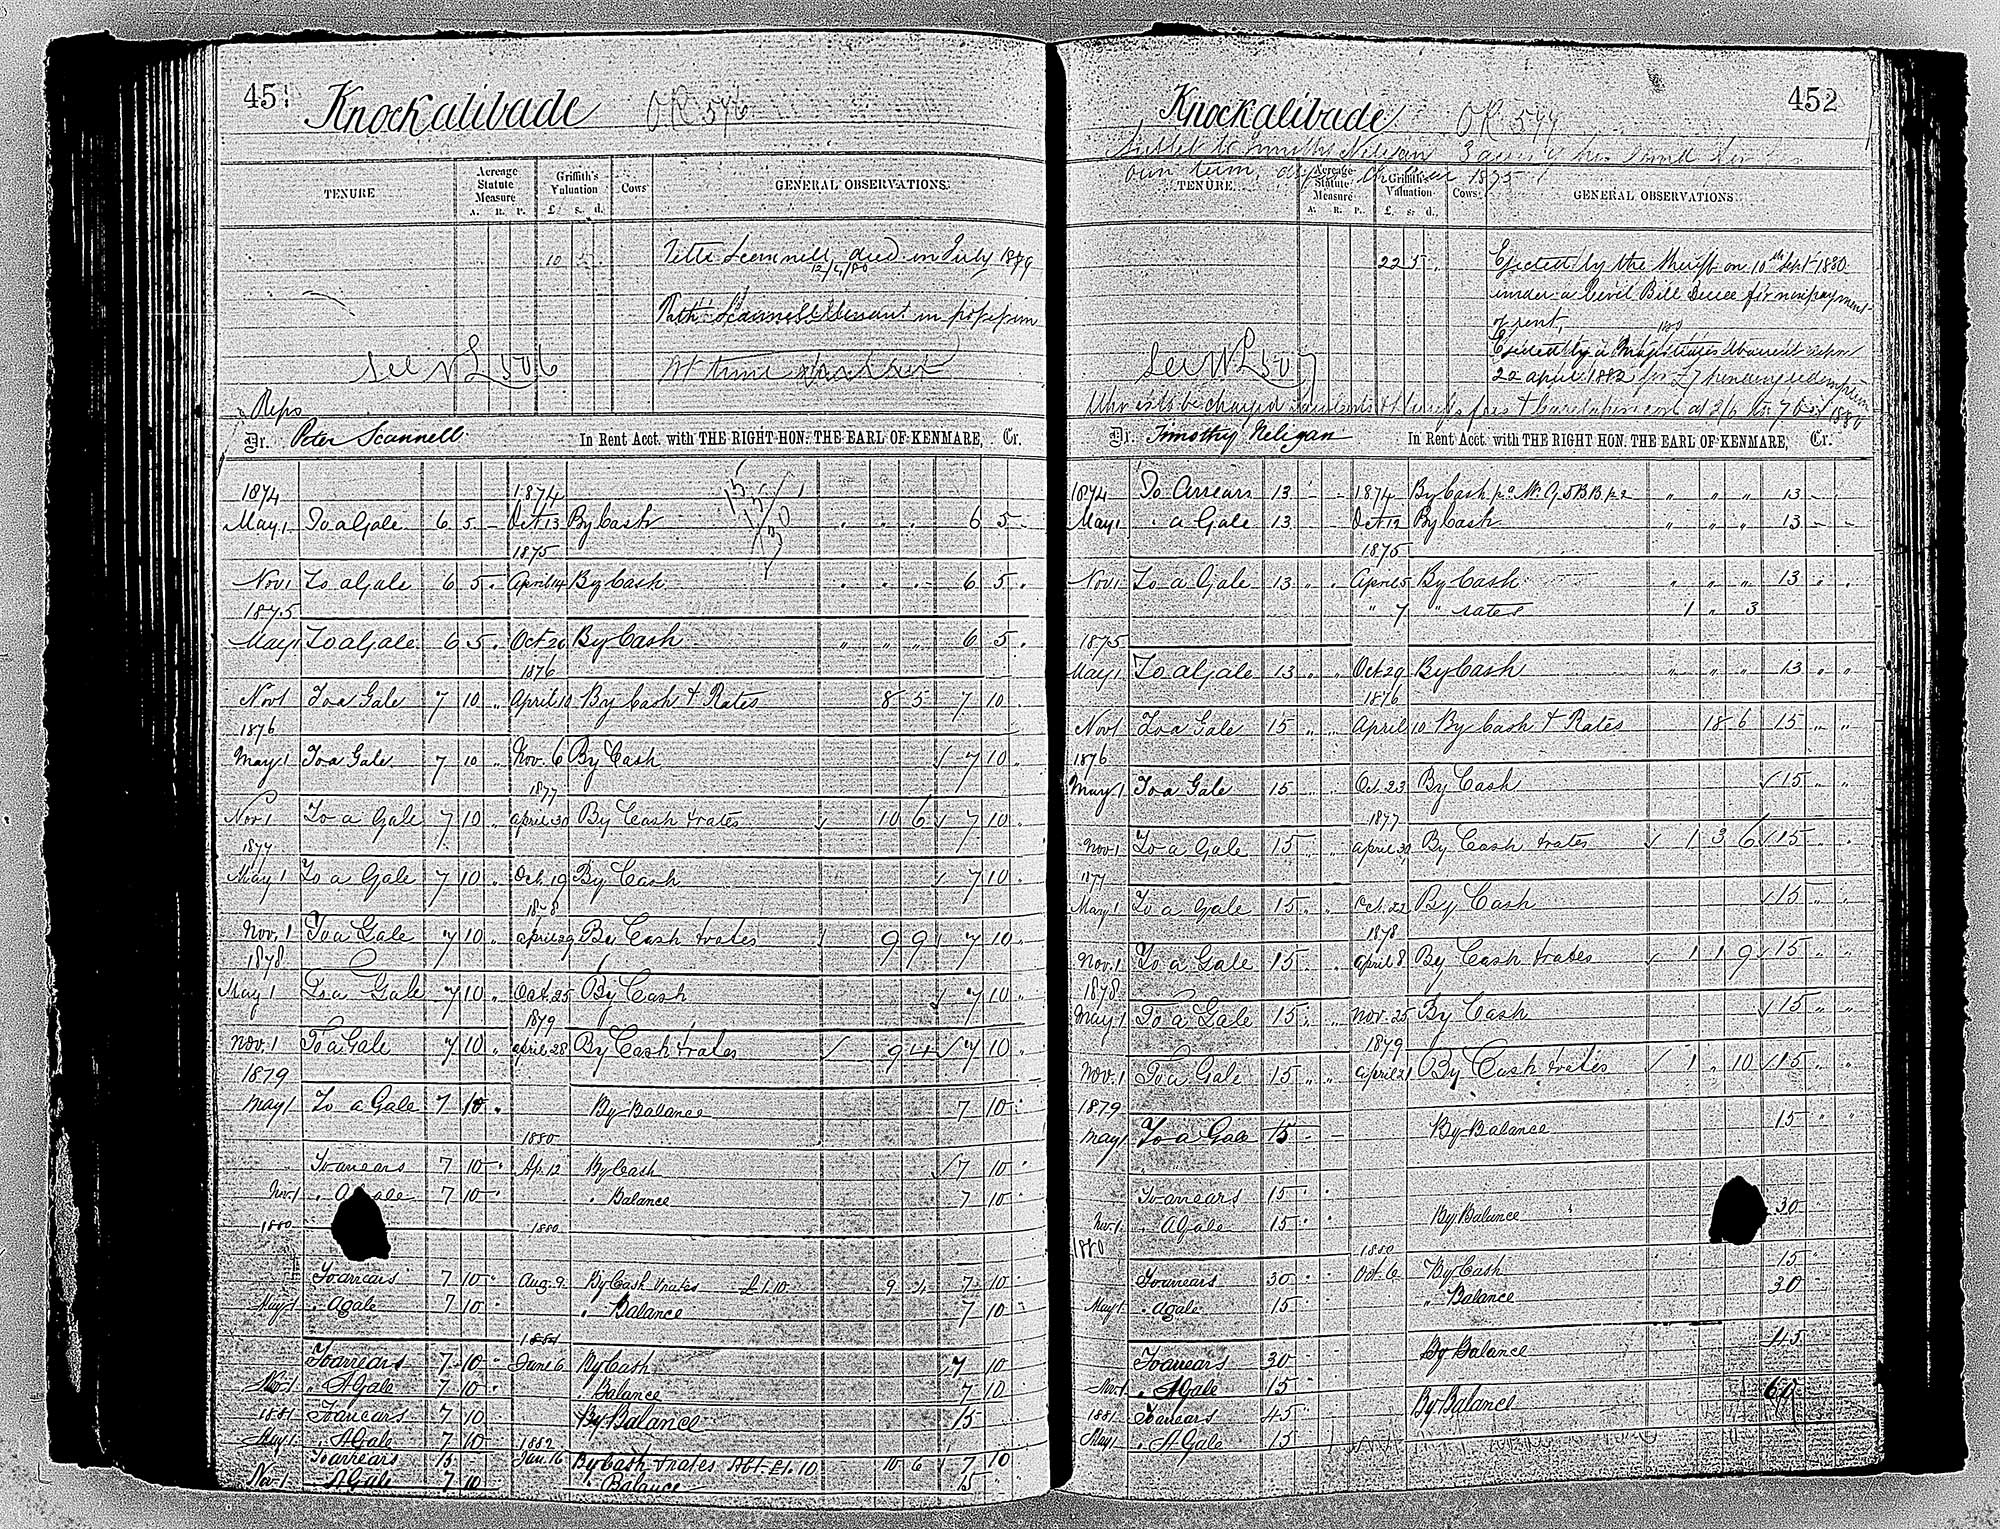 451 Knockalibade O.R 546
TENURE Acreage Statute Measure A. R. P. Griffith's Valuation £ s. d. Cows GENERAL OBSERVATIONS.
10 5 Scannell died in July 1879
12/4/80
Scannell tenant in
See N L 506 At time
Reps
Dr. Peter Scannell In Rent Acct. with THE RIGHT HON. THE EARL OF KENMARE, Cr.
1874 1874
May 1 To a Gale 6 5 - Oct 13 By Cash " " . 6 5 -
1875
Nov 1 To a Gale 6 5 " April 14 By Cash " " . 6 5 "
1875
May 1 To a Gale 6 5 " Oct 26 By Cash " " " 6 5 "
1876
Nov 1 To a Gale 7 10 " April 10 By Cash & Rates 8 5 7 10
1876
May 1 To a Gale 7 10 " Nov. 6 By Cash ✓ 7 10 "
1877
Nov 1 To a Gale 7 10 " April 30 By Cash & rates ✓ 10 6 ✓ 7 10 "
1877
May 1 To a Gale 7 10 " Oct. 19 By Cash ✓ 7 10 "
1878
Nov. 1 To a Gale 7 10 " April 29 By Cash & rates ✓ 9 9 ✓ 7 10 "
1878
May 1 To a Gale 7 10 " Oct. 25 By Cash ✓ 7 10 "
1879
Nov. 1 To a Gale 7 10 " April 28 By Cash & rates ✓ 9 4 ✓ 7 10 "
1879
May 1 To a Gale 7 10 " By Balance 7 10 "
1880
To arrears 7 10 " Ap. 12 By Cash ✓ 7 10 "
Nov. 1 " A Gale 7 10 " " Balance 7 10 "
1880 1880
To arrears 7 10 " Aug. 9 By Cash & rates £1.10 9 4 7 10 "
May 1 " A gale 7 10 " " Balance 7 10 "
1881
To arrears 7 10 " June 6 By Cash ✓ 7 10
Nov. 1 " A Gale 7 10 " " Balance 7 10
1881 To arrears 7 10 By Balance 15
May 1 " A Gale 7 10 1882
To arrears 15 - Jan 16 By Cash & rates Abt. £1.10 10 6 ✓ 7 10
Nov. 1 A Gale 7 10 " Balance 15 "
Knockalibade OR 544 452
Sublet to Timothy Neligan 3 acres
own term, 1875
TENURE Acreage Statute Measure A. R. P. Griffith's Valuation £ s. d. Cows. GENERAL OBSERVATIONS.
22 5 " Ejected by the Sheriff on 10th Sept 1880
under a Civil Bill Decree for nonpayment
of rent,
See N L 507 Ejected by a Magistrates Warrant
22 April 1882 for £7 redemption
Who is to be charged
Dr. Timothy Neligan In Rent Acct. with THE RIGHT HON. THE EARL OF KENMARE, Cr.
1874 To Arrears 13 - - 1874 By Cash " " " 13 - .
May 1 " a Gale 13 - Oct 12 By Cash " " " 13 - -
1875
Nov 1 To a Gale 13 " " April 5 By Cash " " " 13 " "
" 7 " rates 1 " 3
1875
May 1 To a Gale 13 " " Oct 29 By Cash " " " 13 " "
1876
Nov 1 To a Gale 15 " " April 10 By Cash & Rates 18 6 15 " "
1876
May 1 To a Gale 15 " " Oct. 23 By Cash ✓ 15 " "
1877
Nov. 1 To a Gale 15 " " April 30 By Cash & rates ✓ 1 3 6 ✓ 15 " "
1877
May 1 To a Gale 15 " " Oct. 22 By Cash ✓ 15 " "
1878
Nov. 1 To a Gale 15 " " April 8 By Cash & rates ✓ 1 1 9 ✓ 15 " "
1878
May 1 To a Gale 15 " " Nov. 25 By Cash ✓ 15 " "
1879
Nov. 1 To a Gale 15 " " April 21 By Cash & rates ✓ 1 " 10 ✓ 15 " "
1879
May 1 To a Gale 15 " - By Balance 15 " "
To arrears 15 " "
Nov. 1 " A Gale 15 " " By Balance 30
1880 1880
To arrears 30 " " Oct. 6 By Cash 15
May 1 " A gale 15 " " " Balance 30
To arrears 30 By Balance 45
Nov. 1 " A Gale 15
1881 To arrears 45 By Balance 60
May 1 " A Gale 15